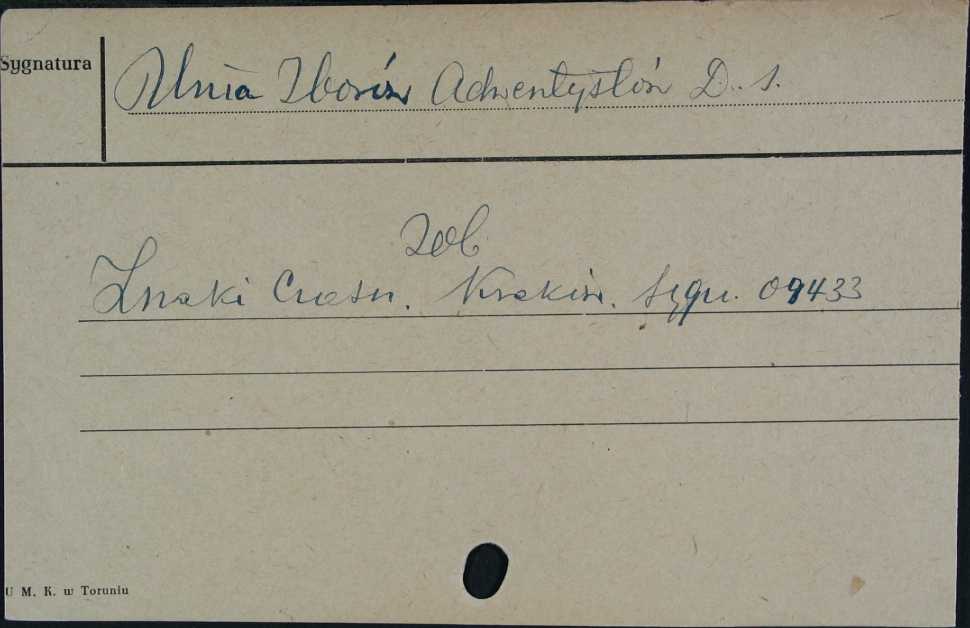 Sygnatura
Unia Zborów Adwentystów D. S.
Zob
Znaki Czasu. Kraków. Sygn. 09433
U M. K. w Toruniu